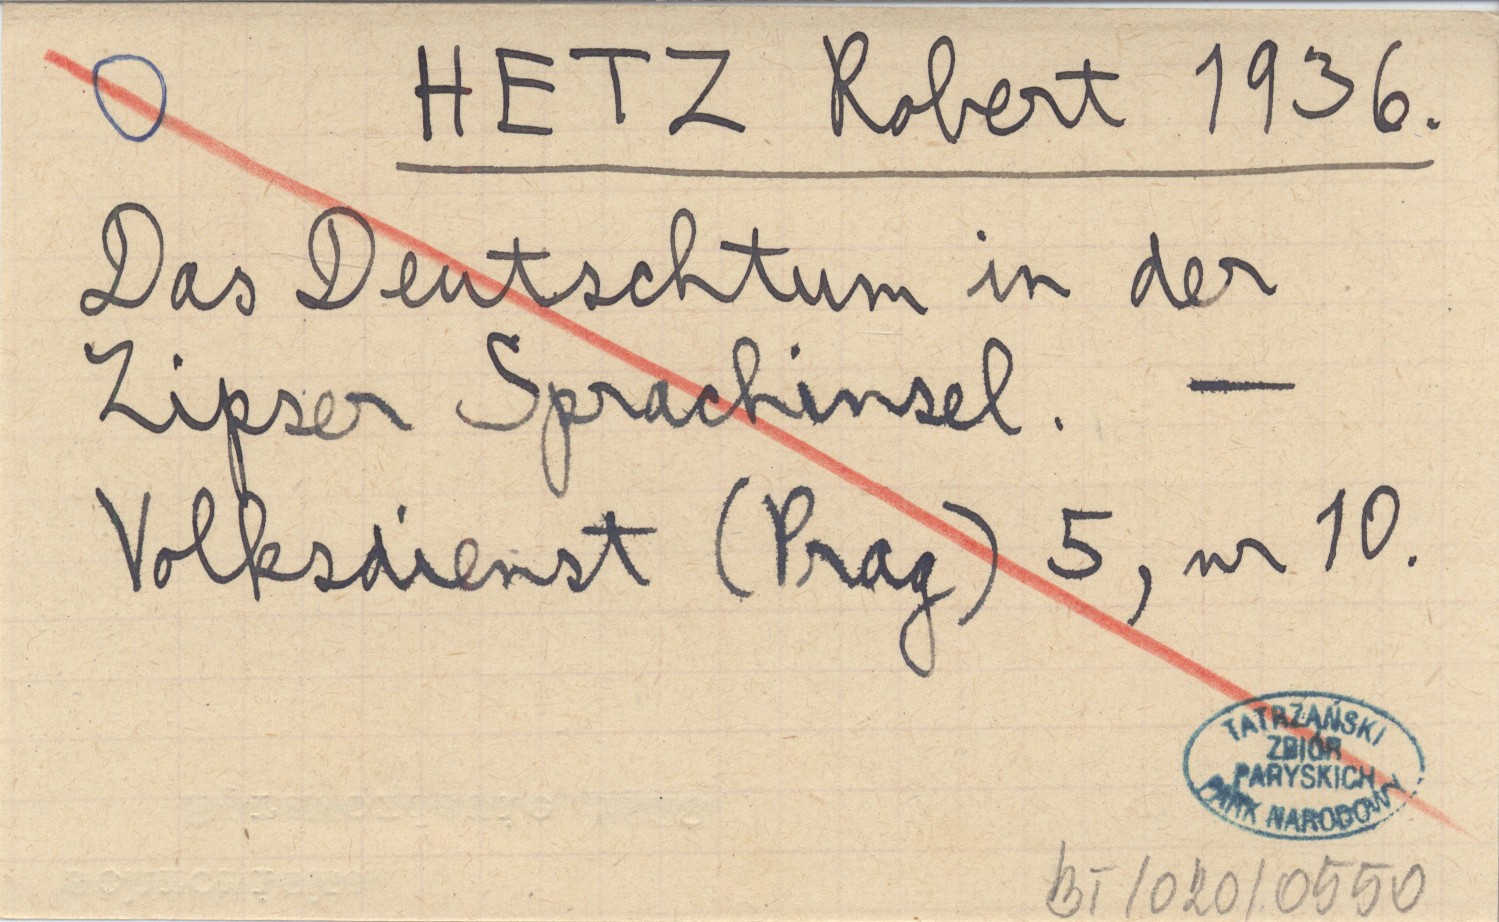 HETZ Robert 1936.
Das Deutschtum in der
Zipser Sprachinsel. —
Volksdienst (Prag) 5, nr 10.
TATRZAŃSKI
ZBIÓR
PARYSKICH
PARK NARODOWY
BT/020/0550